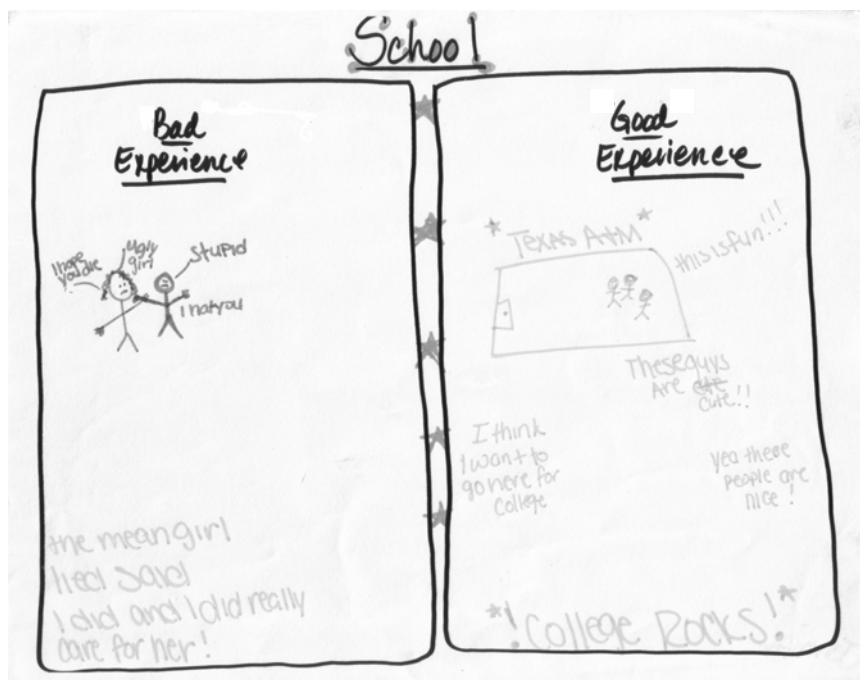 School
Bad
Experience
I hope
you die
ugly
girl
Stupid
I hat you
the mean girl
lied said
I did and I did really
care for her!
Good
Experience
* Texas A+M *
this is fun!!!
These guys
Are cute!!
I think
I want to
go here for
college
yea these
people are
nice!
*!College Rocks!*